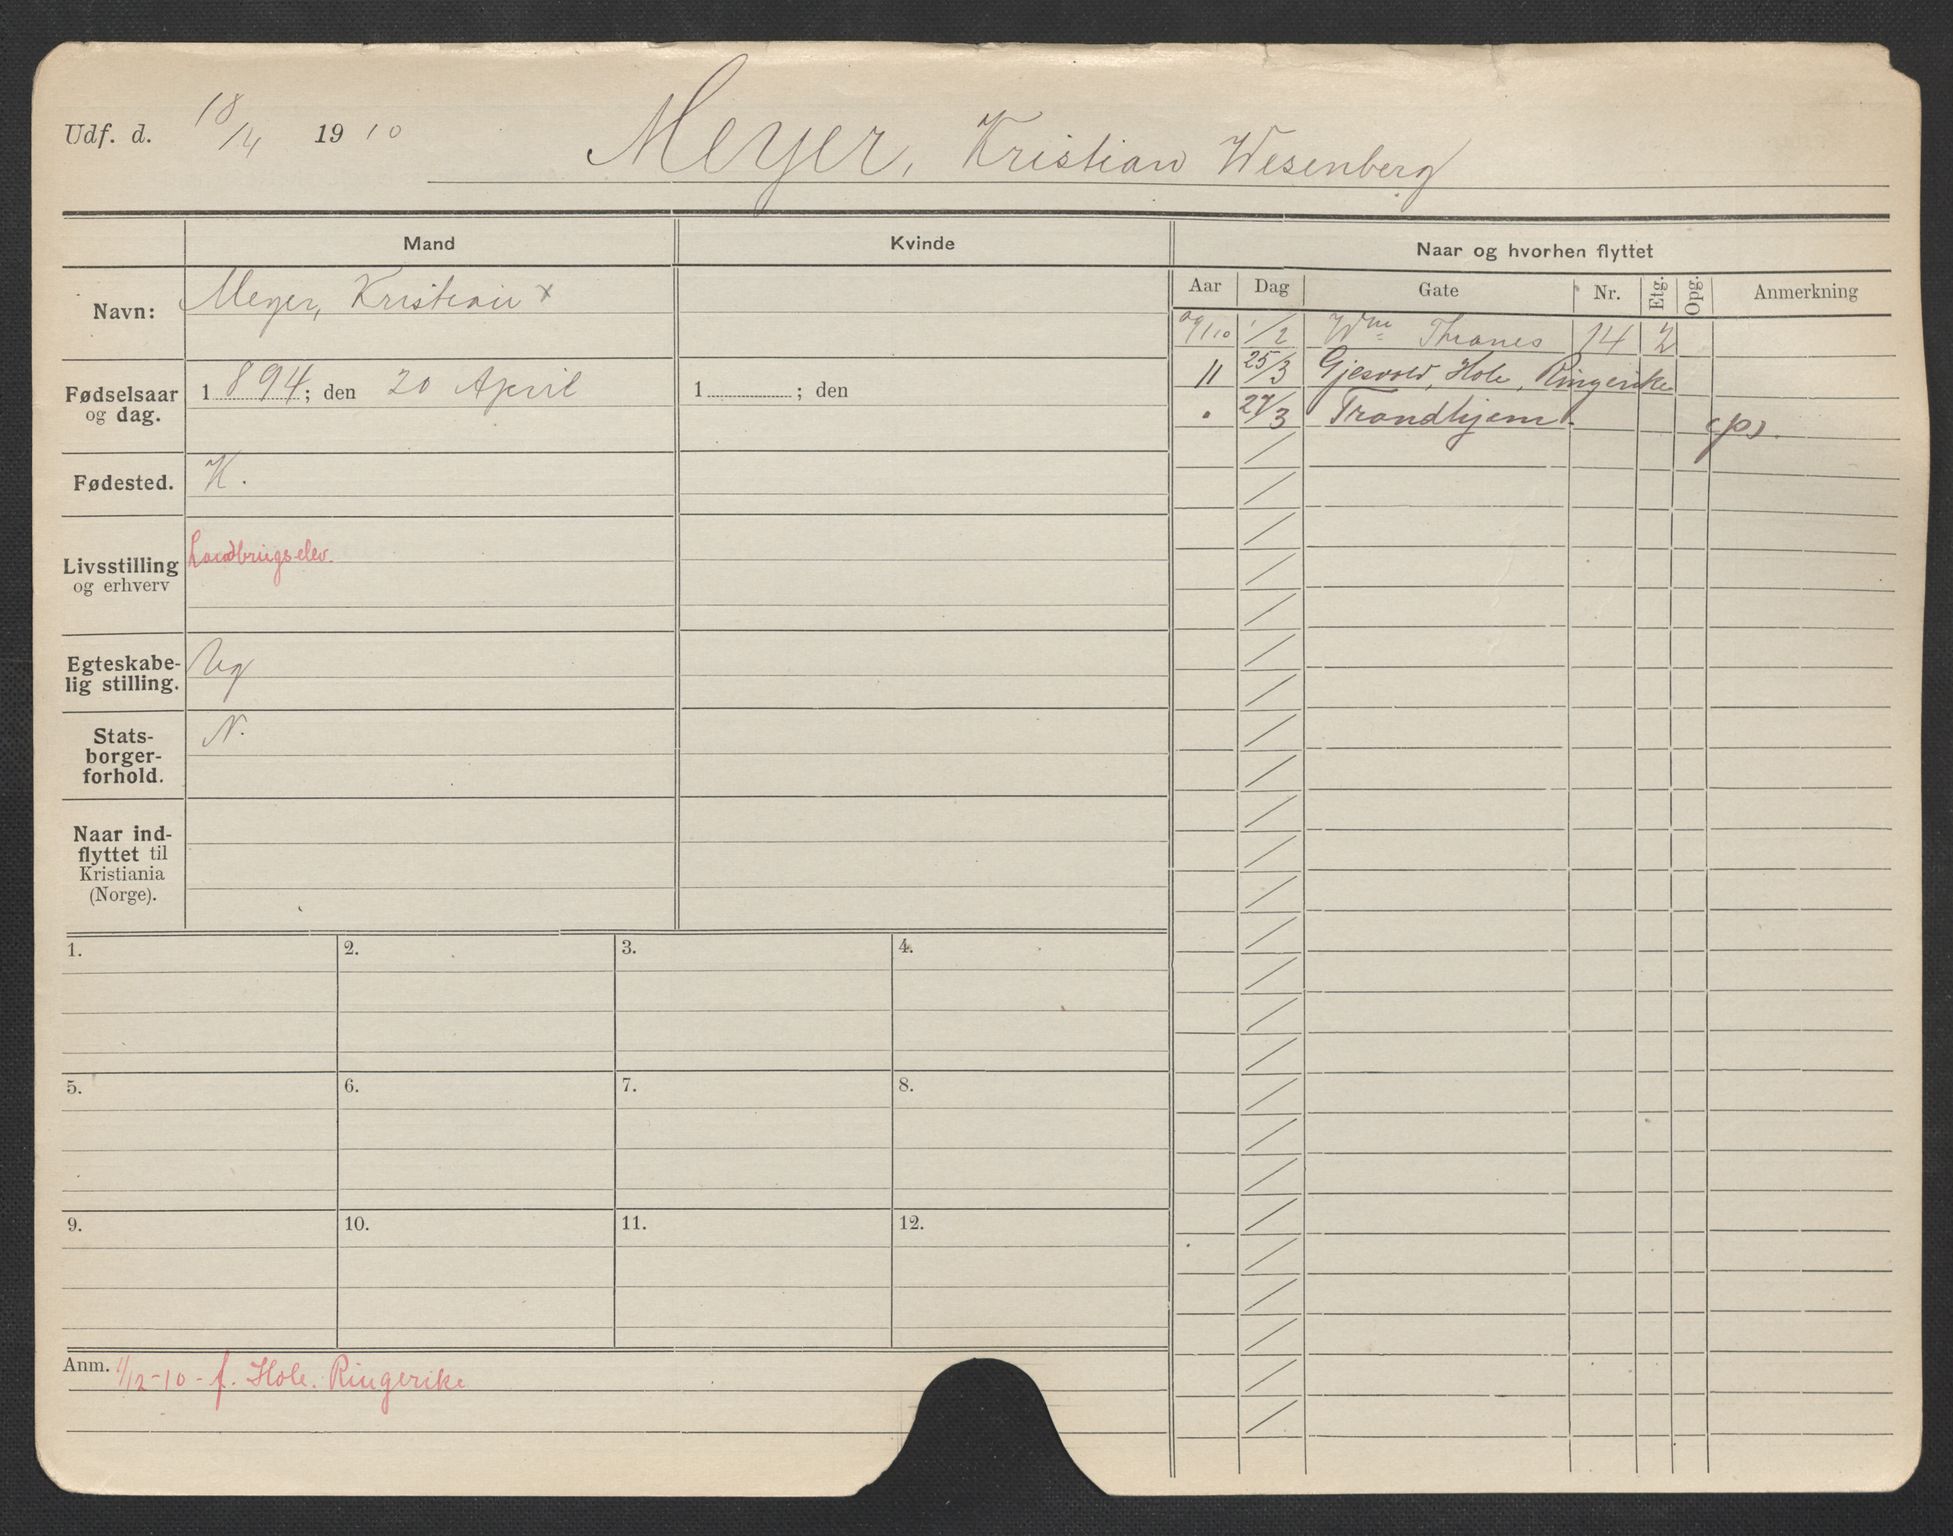 Udf. d. 18/4 1910
Meyer, Kristian Wesenberg
Mand
Kvinde
Naar og hvorhen flyttet
Aar Dag Gate Nr. Etg. Opg. Anmerkning
Navn: Meyer, Kristian x
Fødselsaar og dag. 1894; den 20 April
1 ; den
Fødested. K.
Livsstilling og erhverv
Landbrugselev.
Egteskabe-
lig stilling. Ug
Stats-
borger-
forhold. N.
Naar ind-
flyttet til
Kristiania
(Norge).
09/10 1/2 Wm Thranes 14 2
11 25/3 Gjesvold, Hole, Ringerike
" 27/3 Trondhjem. (p).
1. 2. 3. 4.
5. 6. 7. 8.
9. 10. 11. 12.
Anm. 1/12-10 - f. Hole. Ringerike